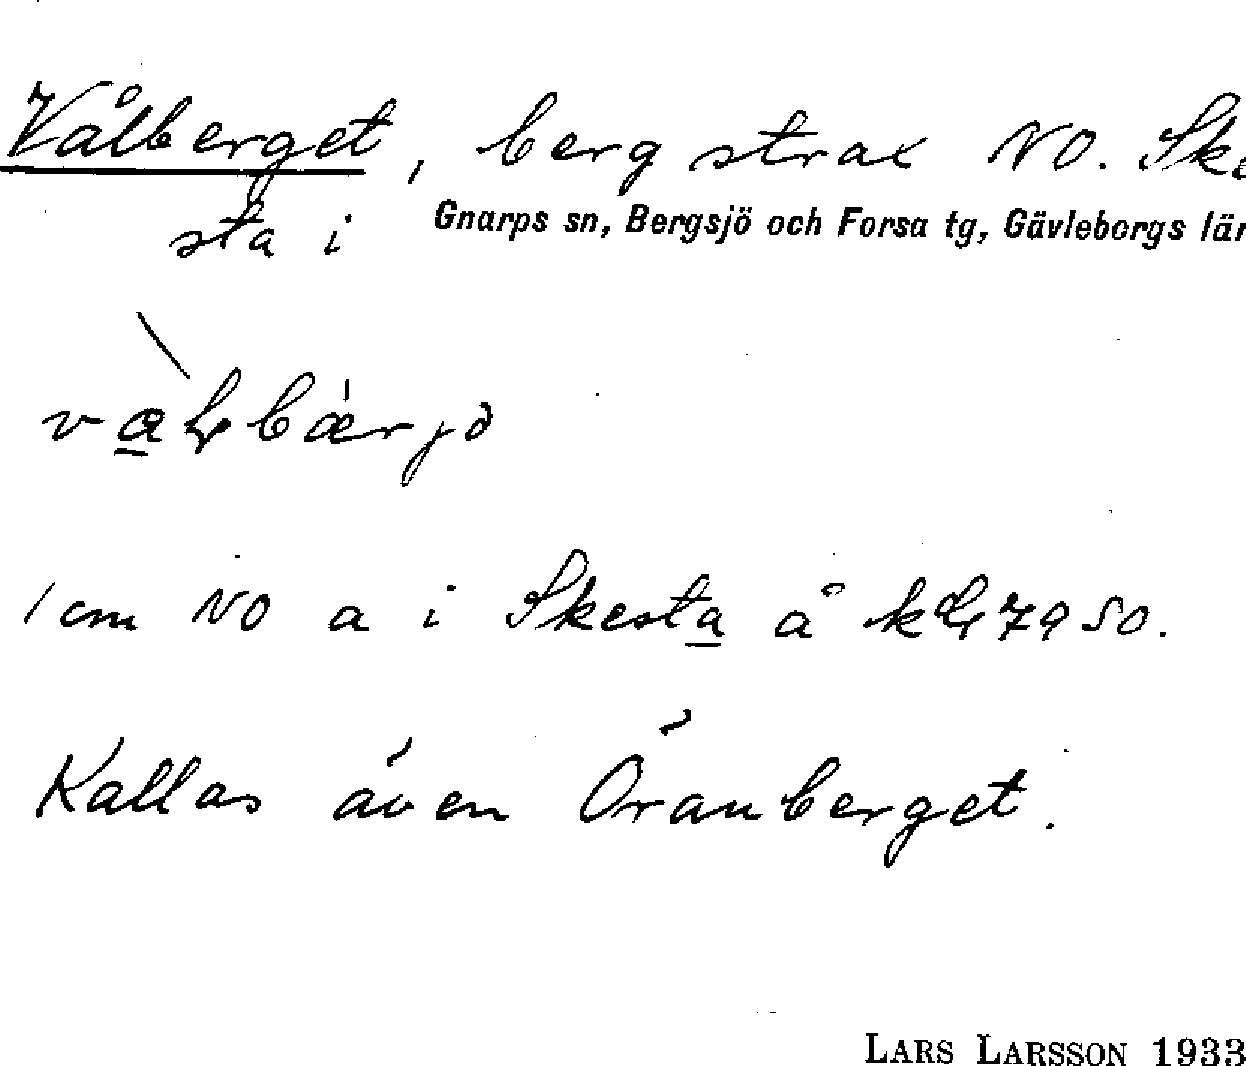 Vålberget, berg strax NO. Ske
sta i Gnarps sn, Bergsjö och Forsa tg, Gävleborgs län
1 cm NO a i Skesta å kbl 79 SO.
Kallas även Öranberget.
LARS LARSSON 1933